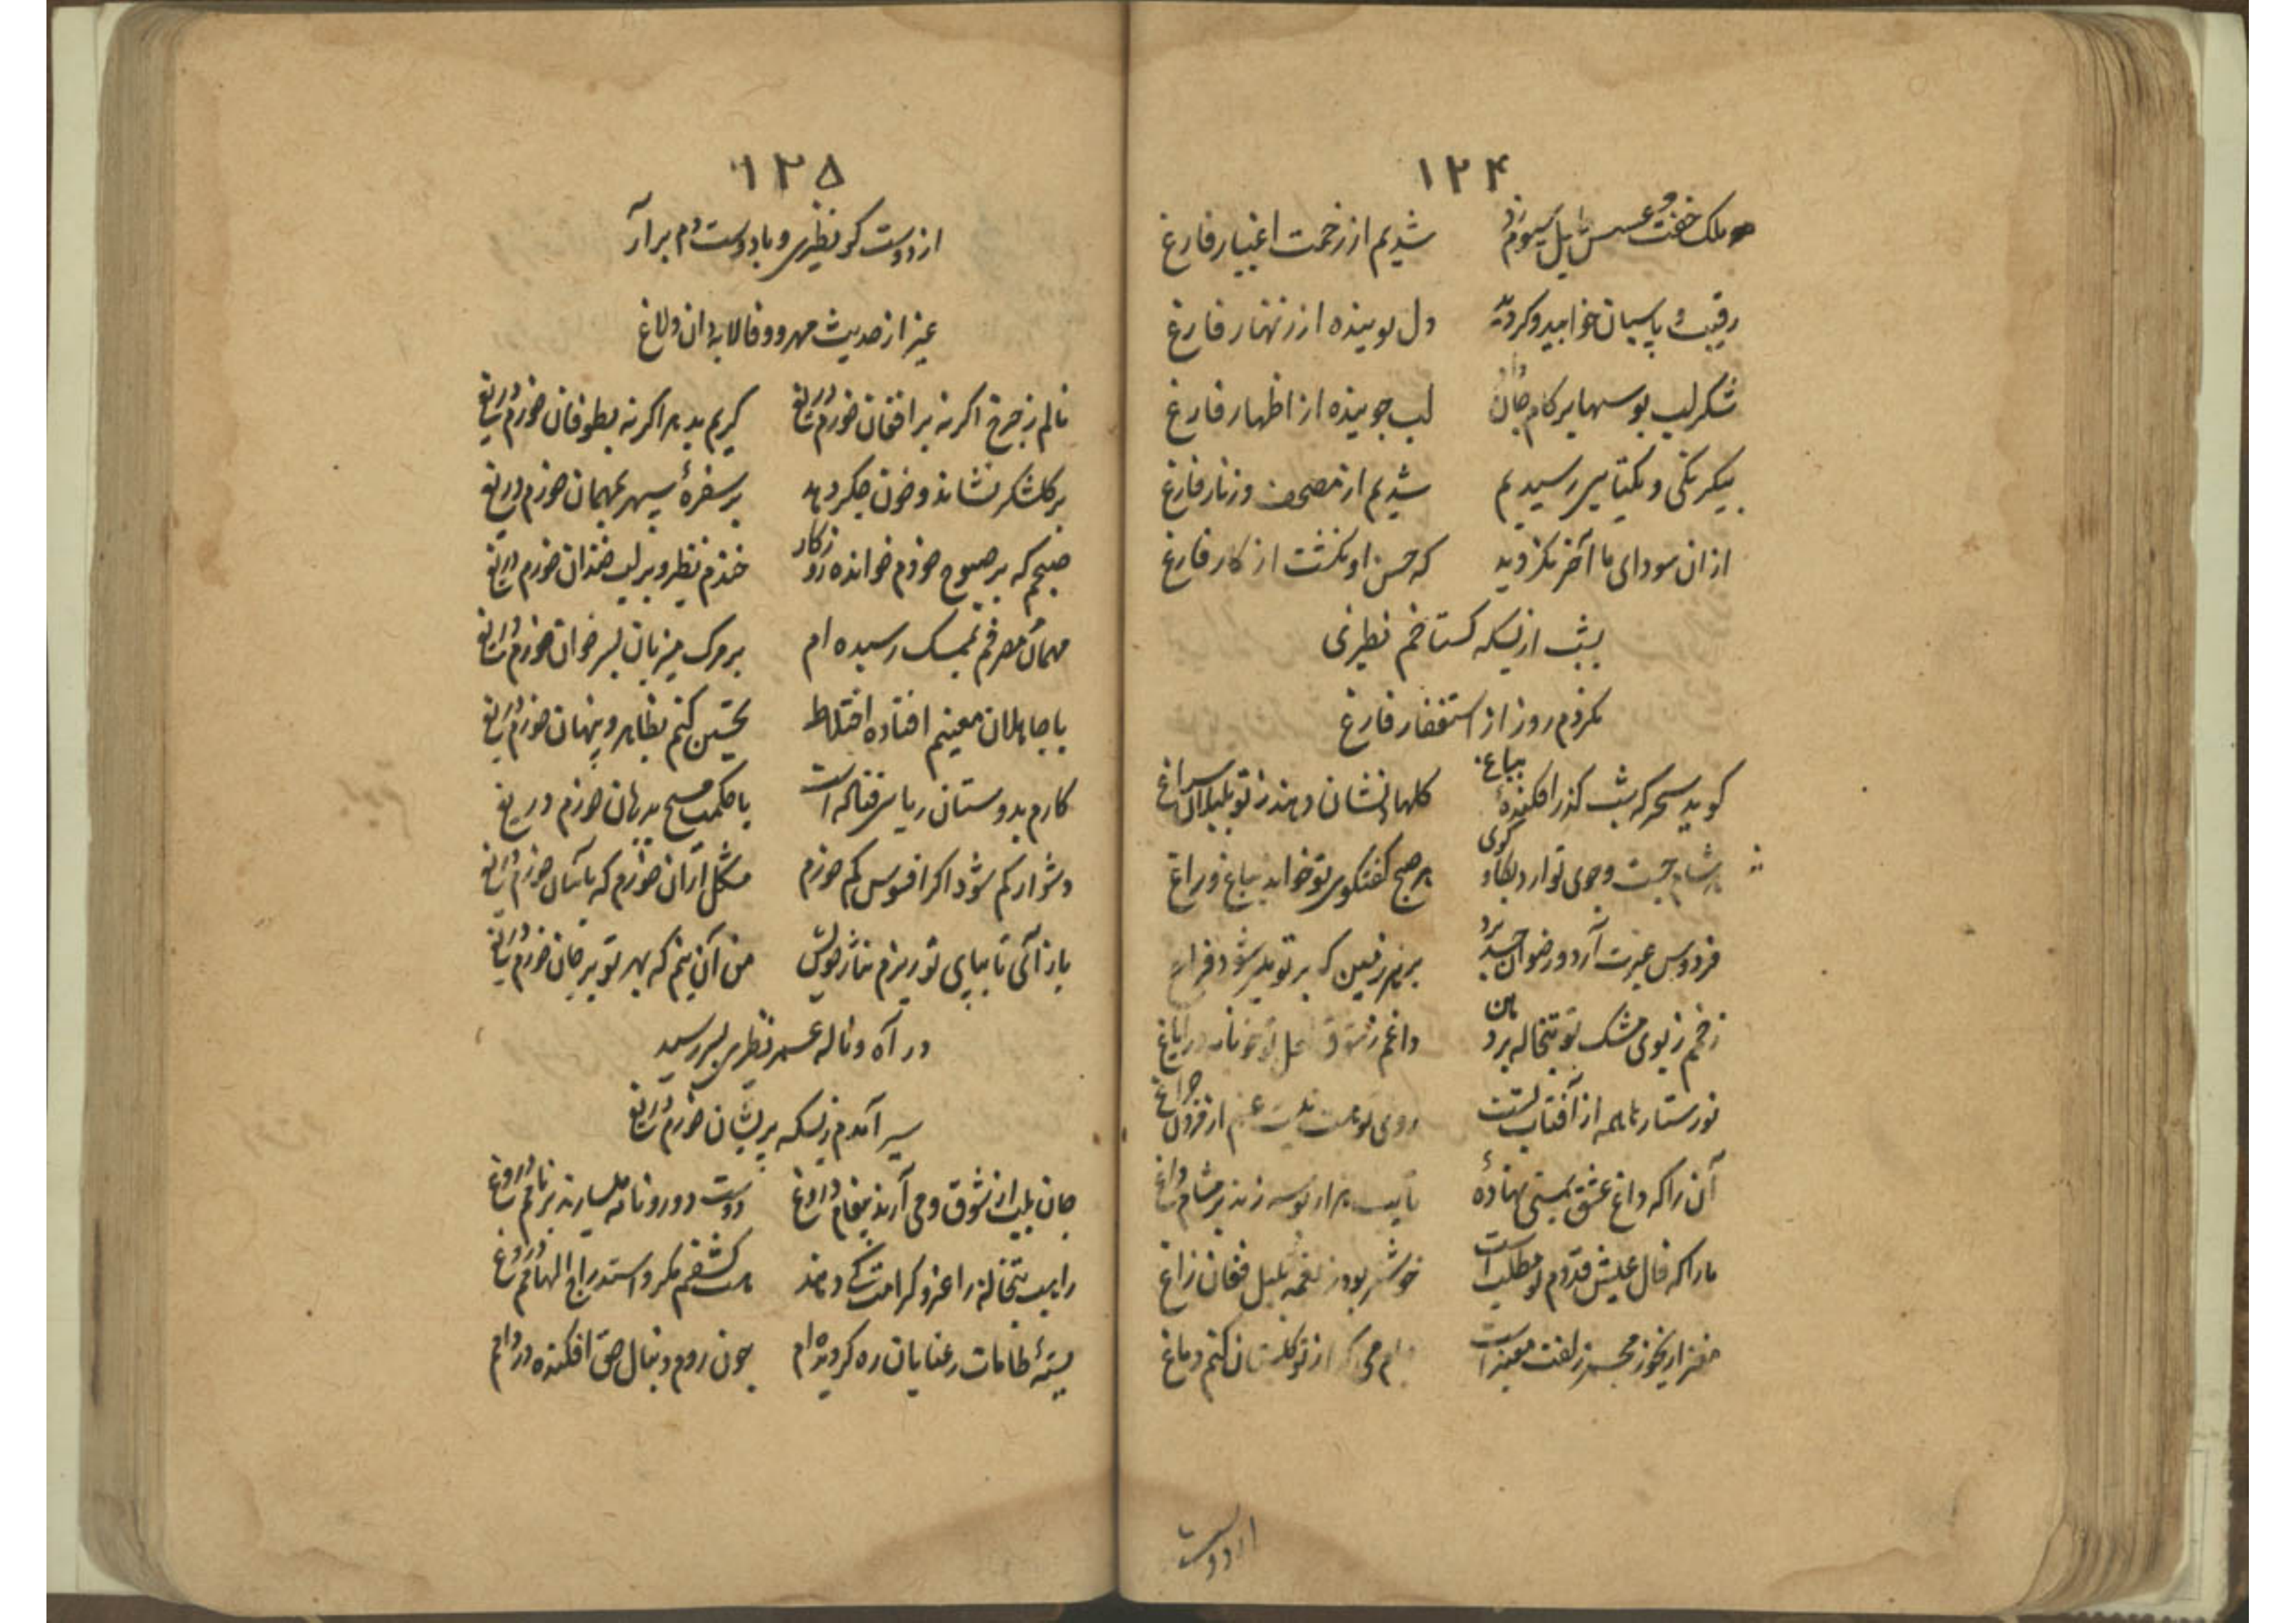 ۱۲۴
ملک خفت و عسس با پیل سیوم زد شدیم از زحمت اغیار فارغ
رقیب و پاسبان خوابید و کردید دل بوینده از زنهار فارغ
شکر لب بوسها بر کام جان داد لب جوینده از اظهار فارغ
بیکرنکی و یکتایی رسیدیم شدیم از مصحف و زنار فارغ
ازان سودای ما آخر نکردید که حسن او نکشت از کار فارغ
بشب از بسکه کستاخم نظیری
نکردم روز از استغفار فارغ
کوید سحر که شب کذر افکندهٔ بباغ کلها نشان دهند ز تو بلبلان سراغ
هر شام جست و جوی تو ارد بکاو کوی هر صبح کفتکوی تو خواند بباغ و راغ
فردوس عبرت آرد و رضوان حسد برد بزم رفیبن که بر تو میسر شود فراغ
زخمم ز بوی مشک تو تبخاله برد داغم ز شوق لعل تو در ایاغ
نور ستاره با همه از آفتاب تست روی تو از فزون چراغ
آن را که داغ عشق به بینی نهادهٔ تا لب هزار بوسه زند بر مشام داغ
مارا که فال عیش قدوم تو مطلب است خوشتر بود ز نغمه بلبل فغان زاغ
مغز از بخور مجمر زلفت معنبر است از تو کلستان کنم دماغ
از دوست
۱۲۵
از دوست کو نظیری و با دوست دم برآر
غیر از حدیث مهر و وفا لابه دان و لاغ
نالم ز چرخ اکر نه بر افغان خورم دریغ کریم بدهر اکر نه بطوفان خورم دریغ
بر کلشکر نشاند و خون جکر دهد بر سفرهٔ سپهر بمهمان خورم دریغ
صبحم که بر صبوح خودم خوانده روزکار خندم نظر و بر لب خندان خورم دریغ
مهمان مصرفم بمسک رسیده ام بر مرک میزبان بسر خوان خورم دریغ
با جاهلان معینم افتاده اختلاط تحسین کنم بظاهر و پنهان خورم دریغ
کارم بدوستان ریایی فتاده است با حکمت مسیح بدرمان خورم دریغ
دشوار کم شود اکر افسوس کم خورم مشکل ازان خورم که باسان خورم دریغ
باز آئی تا بپای تو ریزم نثار خویش من آن نیم که بهر تو بر جان خورم دریغ
در آه و ناله عمر نظیری بسر رسید
سیر آمدم ز بسکه پریشان خورم دریغ
جان بلب از شوق و می آرند پیغام دروغ دوست دور و نامه میسارند بر نامم دروغ
راهب بتخانه را عز و کرامت کی دهند هست کشفم مکر و استدراج الهامم دروغ
بستهٔ طامات رعنایان ره کردیده ام چون روم دنبال حق افکنده در دامم